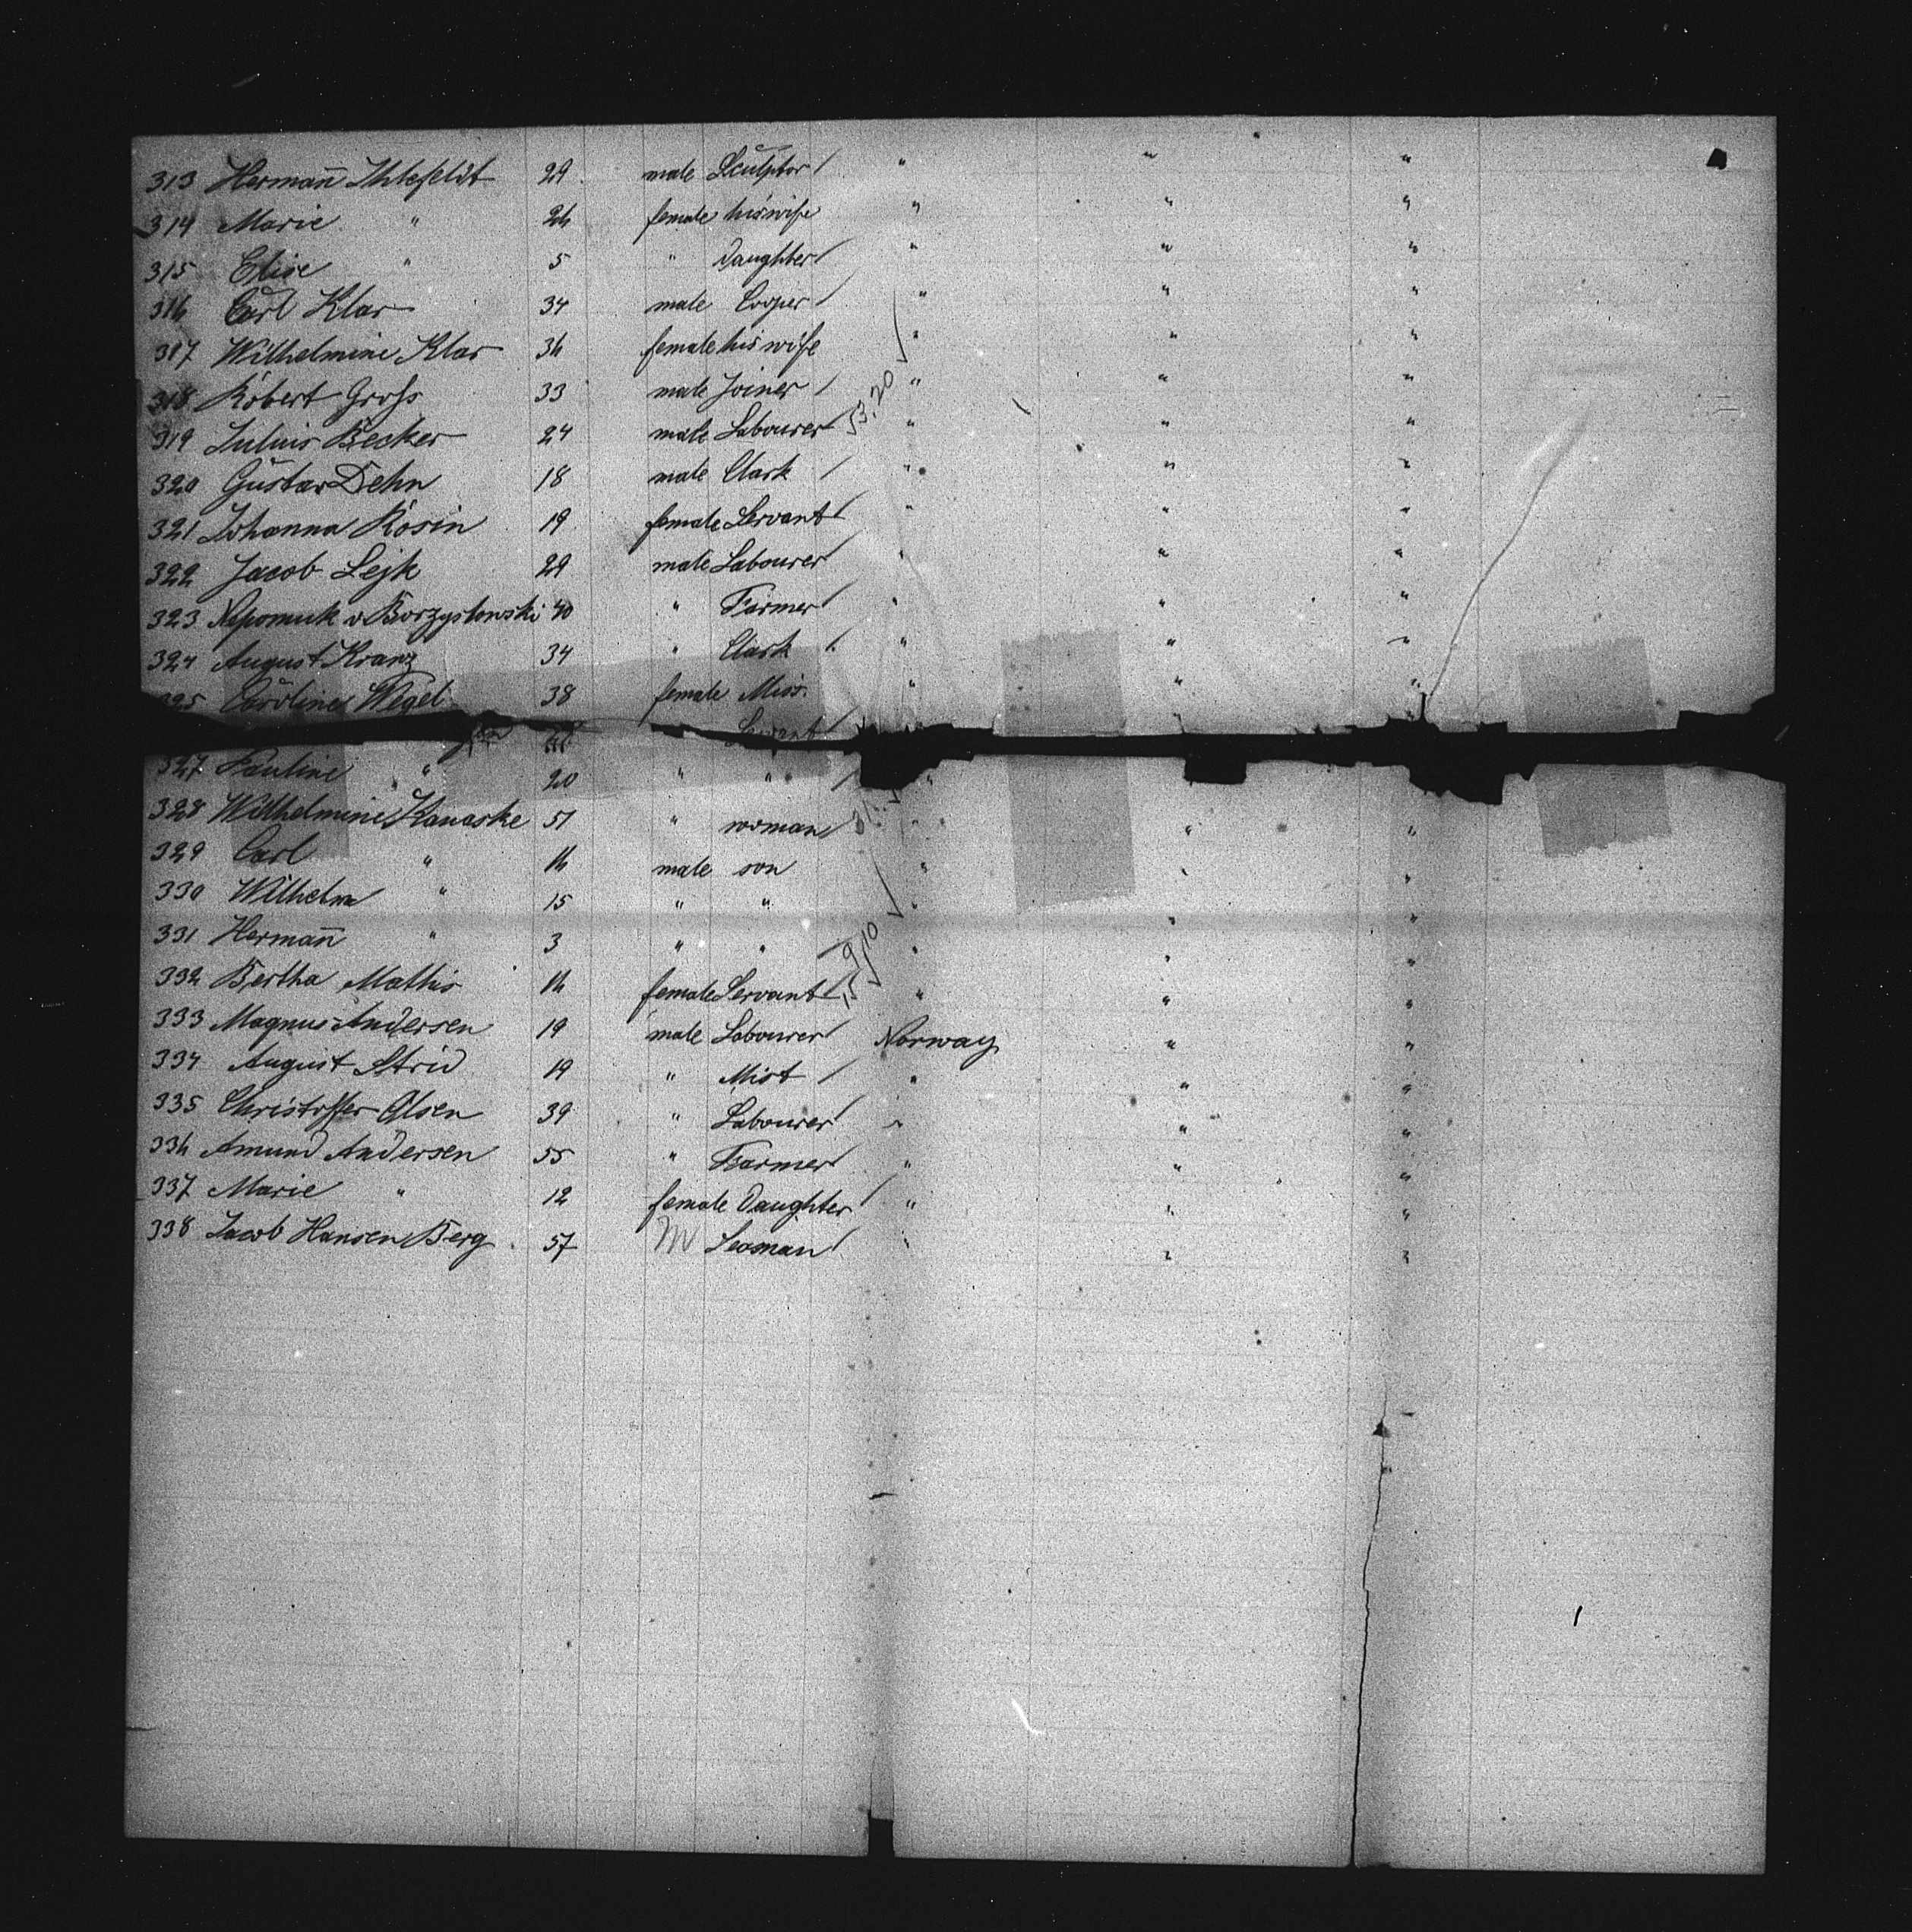 313 Hermañ Ihlefeldt 29 male Sculptor / " " "
314 Marie " 26 female his wife " " "
315 Elise " 5 " Daughter / " " "
316 Carl Klar 34 male Cooper / " " "
317 Wilhelmine Klar 36 female his wife " " "
318 Robert Groß 33 male Joiner / " " "
319 Julius Becker 24 male Labourer / " " "
320 Gustav Dehn 18 male Clark / " " "
321 Johanna Rosin 19 female Servant / " " "
322 Jacob Lejk 29 male Labourer / " " "
323 Nepomuk v Borzyslowski 40 " Farmer / " " "
324 August Kranz 34 " Clark / " " "
325 Caroline Wegel 38 female Miss " " "
Servant /
327 Pauline " 20 " " / "
328 Wilhelmine Kanaske 51 " woman / " " "
329 Carl " 16 male son " " "
330 Wilhelm " 15 " " " " "
331 Hermañ " 3 " " " " "
332 Bertha Mathis 16 female Servant / " " "
333 Magnus Andersen 19 male Labourer / Norway " "
334 August Strid 19 " Mist / " " "
335 Christoffer Olsen 39 " Labourer / " " "
336 Amund Andersen 55 " Farmer / " " "
337 Marie " 12 female Daughter / " " "
338 Jacob Hansen Berg 57 M Seaman / " " "